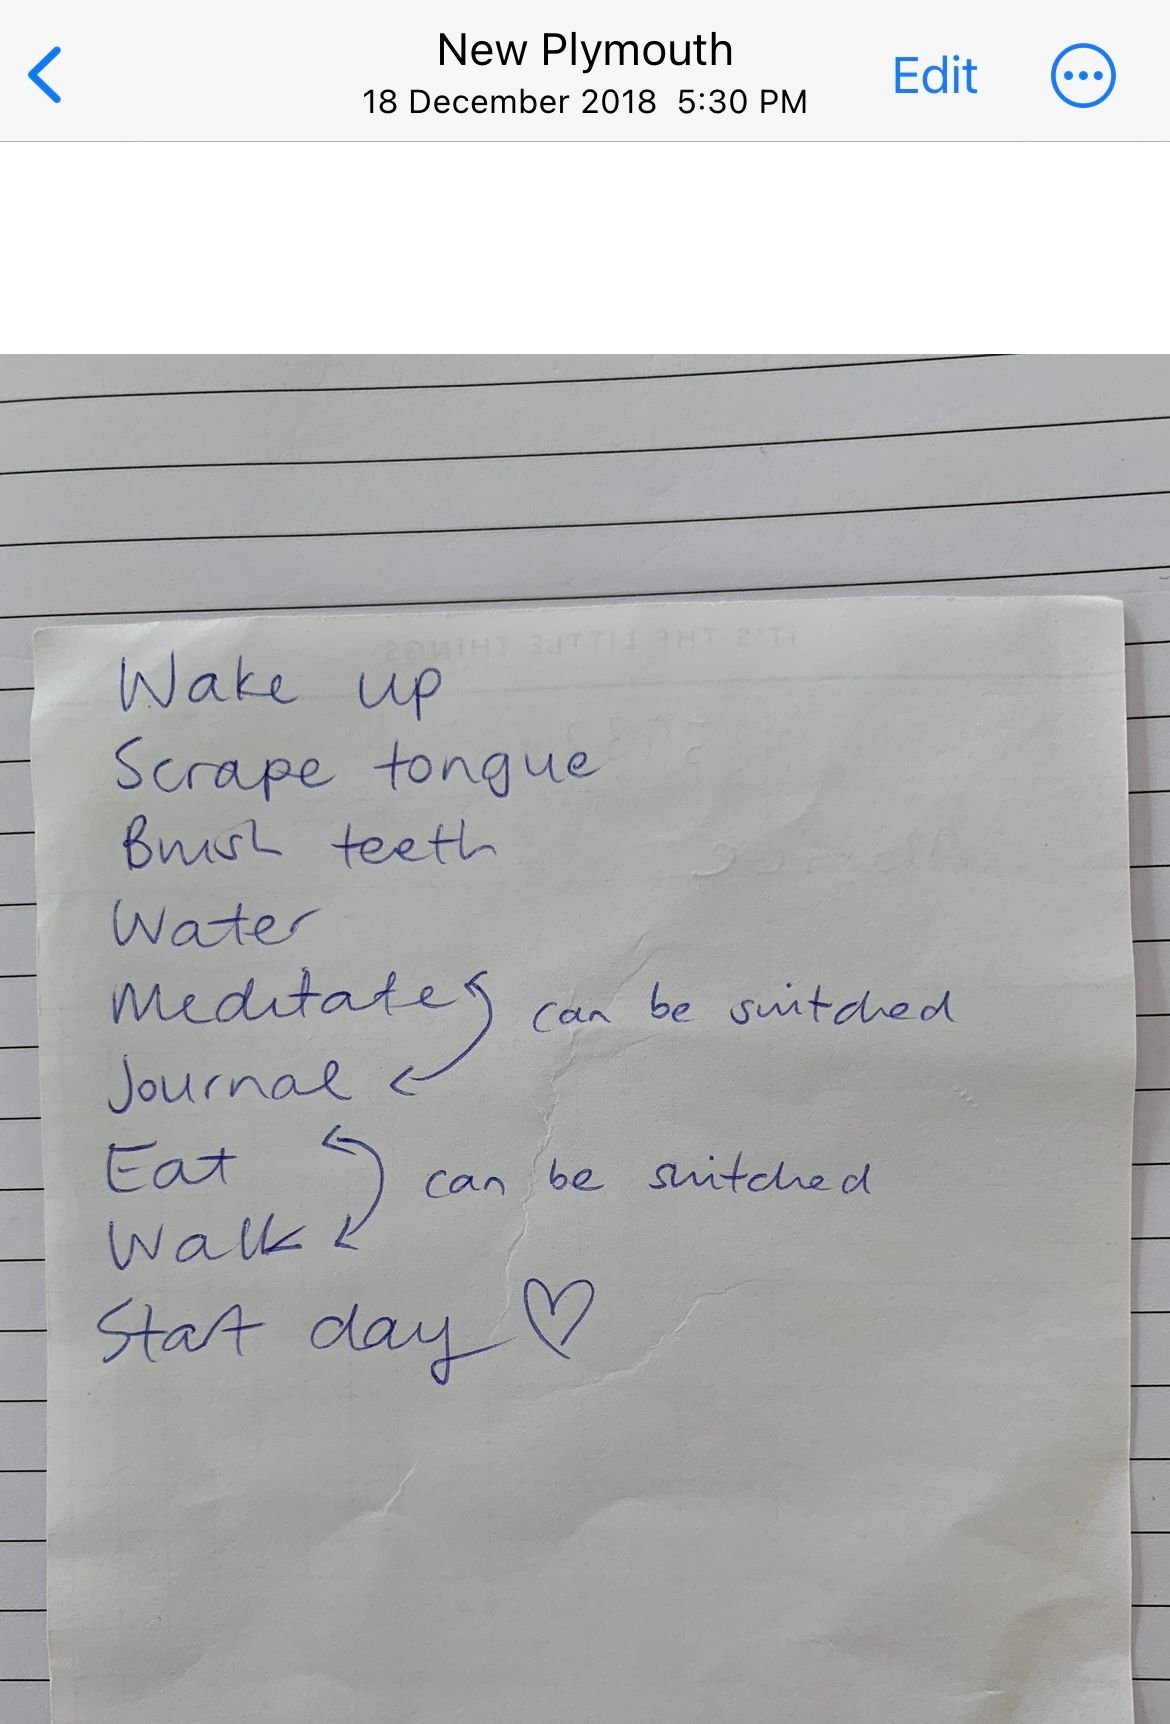 New Plymouth
18 December 2018 5:30 PM
Edit
IT'S THE LITTLE THINGS
Wake up
Scrape tongue
Brush teeth
Water
Meditate can be switched
Journal
Eat can be switched
Walk
Start day ♡